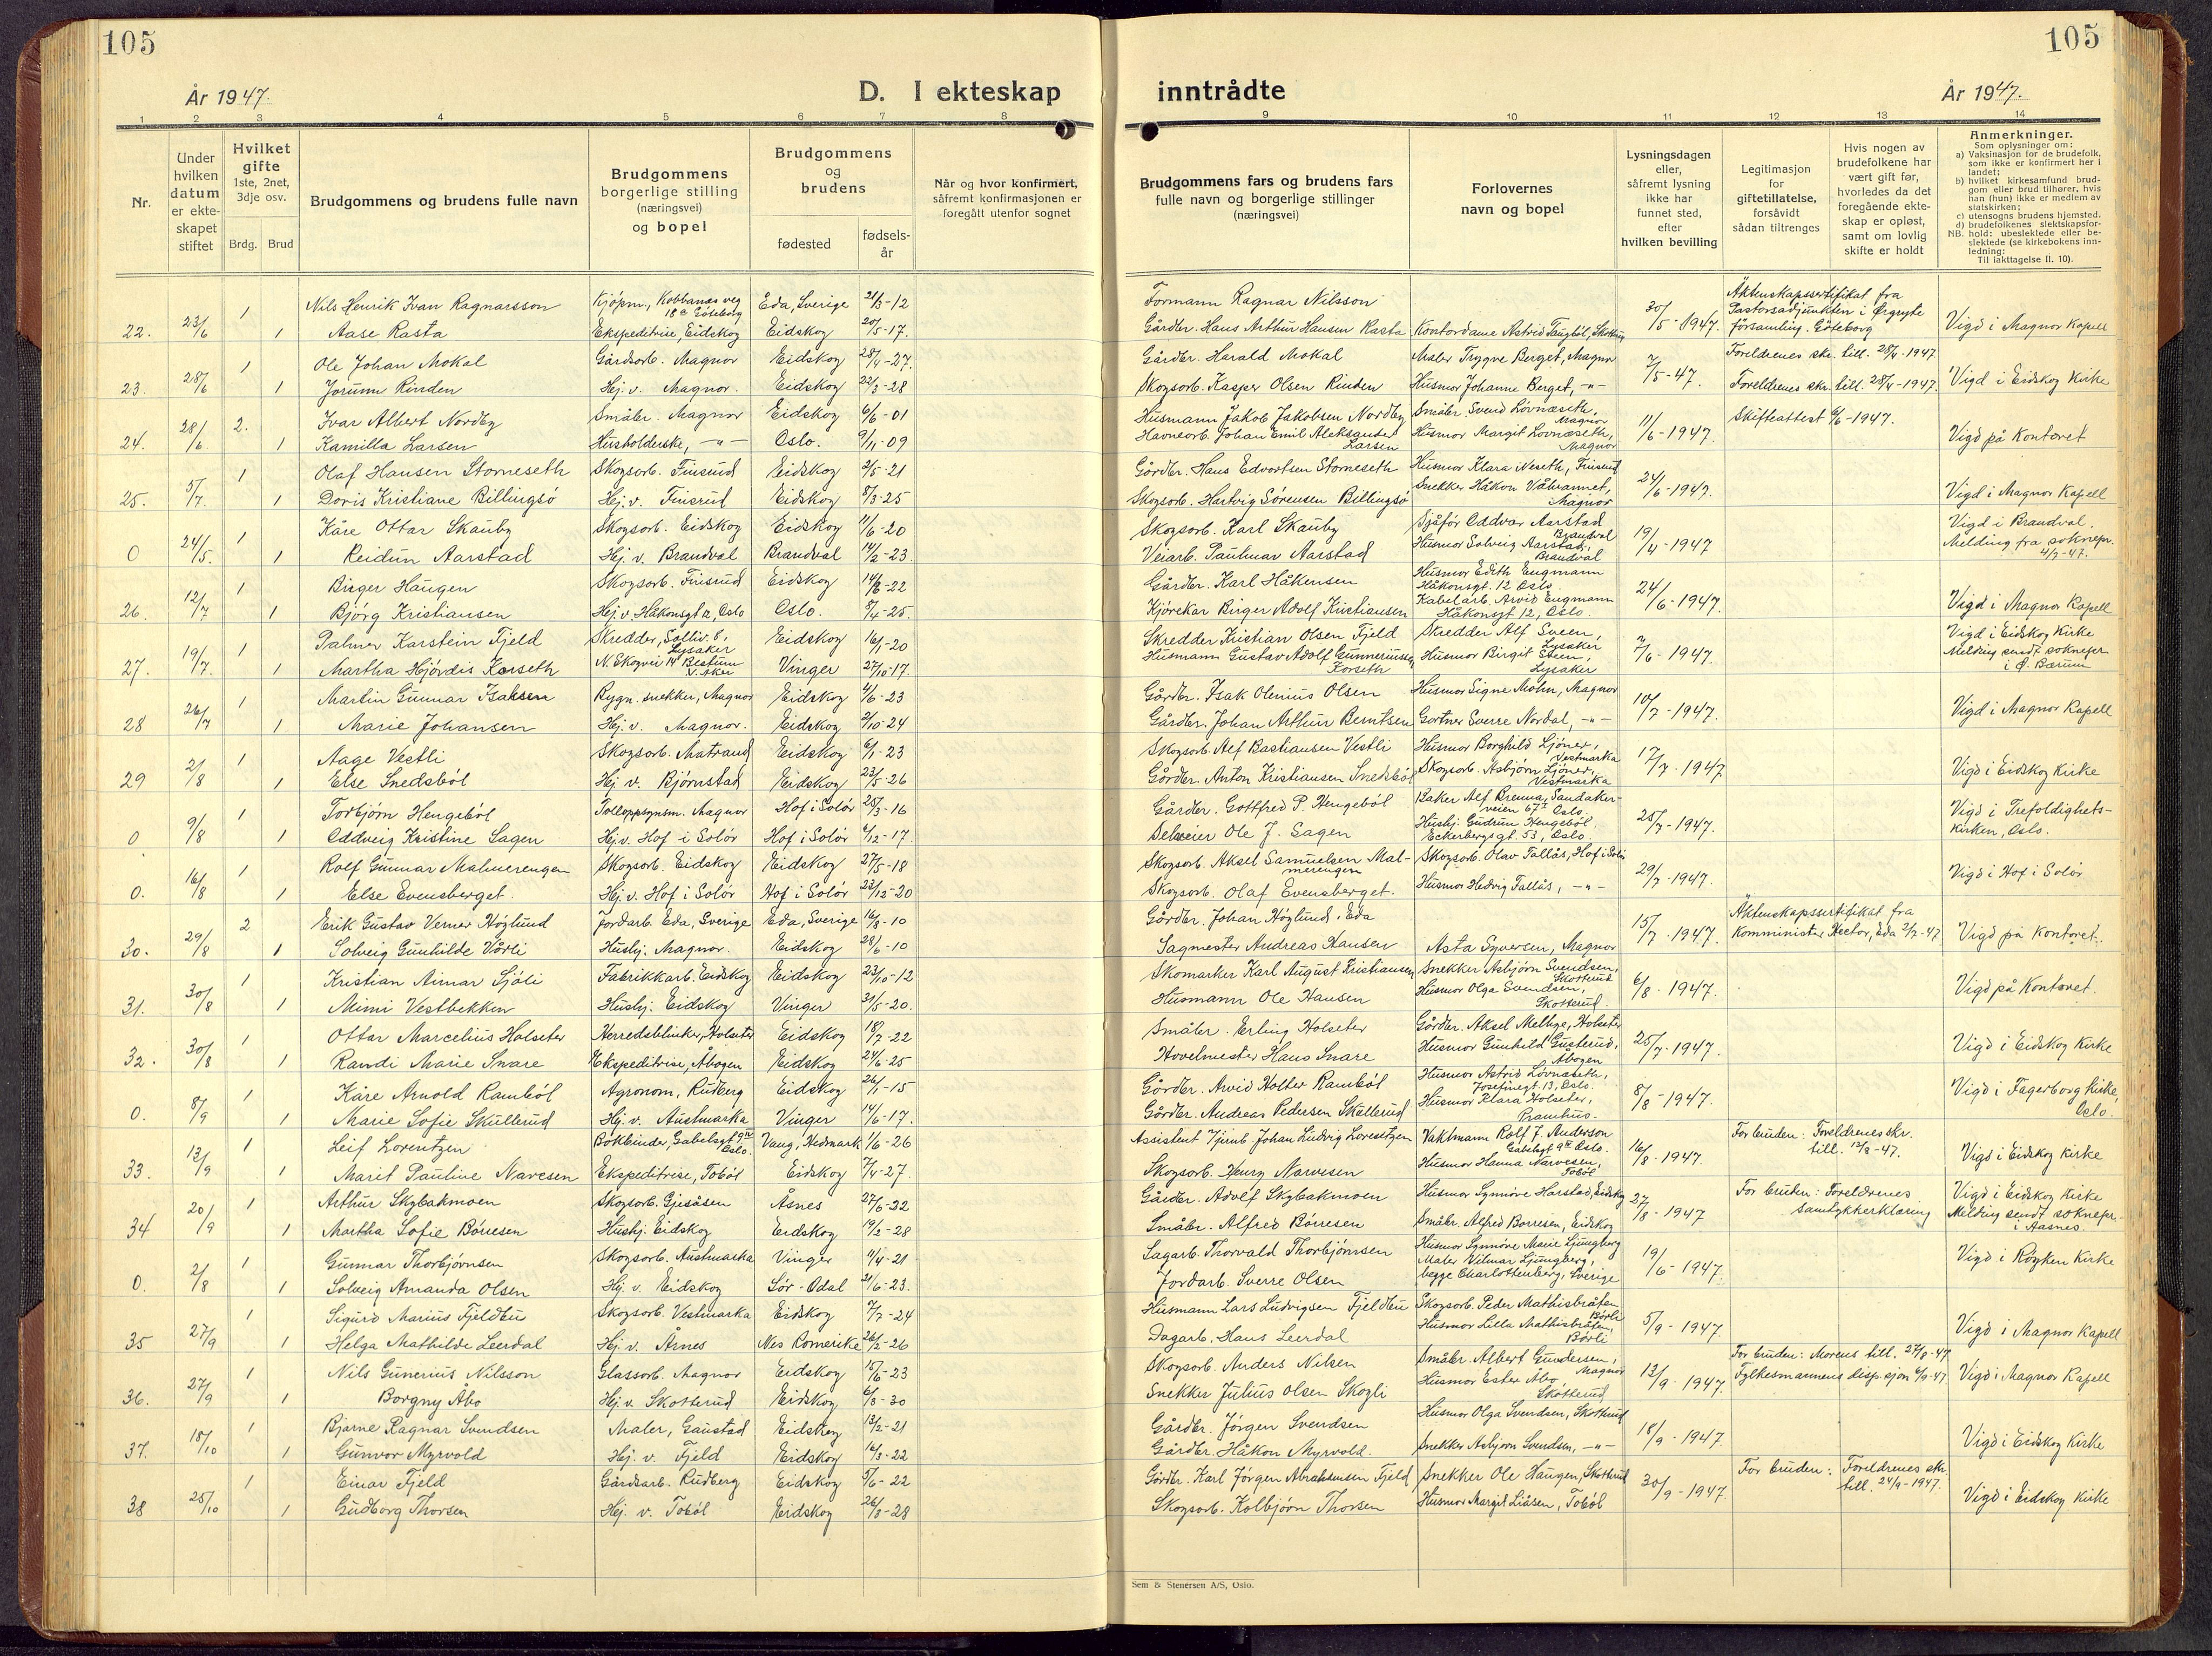 105
105
År 1947.
D. I ekteskap
inntrådte
År 1947.
1 2 3 4 5 6 7 8
9 10 11 12 13 14
Nr.
Under hvilken datum er ekteskapet stiftet
Hvilket gifte 1ste, 2net, 3dje osv.
Brdg. Brud
Brudgommens og brudens fulle navn
Brudgommens borgerlige stilling (næringsvei) og bopel
Brudgommens og brudens
fødested
fødsels-år
Når og hvor konfirmert, såfremt konfirmasjonen er foregått utenfor sognet
Brudgommens fars og brudens fars fulle navn og borgerlige stillinger (næringsvei)
Forlovernes navn og bopel
Lysningsdagen eller, såfremt lysning ikke har funnet sted, efter hvilken bevilling
Legitimasjon for giftetillatelse, forsåvidt sådan tiltrenges
Hvis nogen av brudefolkene har vært gift før, hvorledes da det foregående ekteskap er opløst, samt om lovlig skifte er holdt
Anmerkninger.
Som oplysninger om:
a) Vaksinasjon for de brudefolk, som ikke er konfirmert her i landet;
b) hvilket kirkesamfund brudgom eller brud tilhører, hvis han (hun) ikke er medlem av statskirken;
c) utensogns brudens hjemsted.
d) brudefolkenes slektskapsforhold: ubeslektede eller beslektede (se kirkebokens innledning:
NB. Til iakttagelse II. 10).
22. 23/6 1 Nils Henrik Ivan Ragnarsson Kjøpm., Kobbanas veg 18 c Göteborg Eda, Sverige 21/3-12 Formann Ragnar Nilsson 30/5-1947. Äktenskapssertifikat fra Pastorsadjunkten i Örgryte församling. Göteborg Vigd i Magnor Kapell
1 Aase Rasta Ekspeditrise, Eidskog Eidskog 20/5-17. Gårdbr. Hans Arthur Hansen Rasta Kontordame Astrid Taugbøl, Skotterud
23. 28/6 1 Ole Johan Mokal Gårdsarb. Magnor Eidskog 28/4-27. Gårdbr. Harald Mokal Maler Trygve Berget, Magnor 7/5-47. Foreldrenes skr. till. 28/4-1947. Vigd i Eidskog Kirke
1 Jorunn Rinden Hej. v. Magnor. Eidskog 22/3-28 Skogsarb. Kasper Olsen Rinden Husmor Johanne Berget, -"- Foreldrenes skr. till. 28/4-1947.
24. 28/6 2. Ivar Albert Nordby Småbr. Magnor Eidskog 6/6-01 Husmann Jakob Jakobsen Nordby Småbr. Svend Lövnæseth, Magnor 11/6-1947. Skifteattest 6/6-1947. Vigd på Kontoret
1 Kamilla Larsen Husholderske, -"- Oslo. 9/11-09 Havnearb. Johan Emil Aleksander Larsen Husmor Margit Lovnæseth, Magnor
25. 5/7. 1 Olaf Hansen Storneseth Skogsarb. Finsrud Eidskog 2/5-21 Gårdbr. Hans Edvartsen Storneseth Husmor Klara Neseth, Finsrud 24/6-1947. Vigd i Magnor Kapell
1 Doris Kristiane Billingsö Hej. v. Finsrud Eidskog 8/3-25 Skogsarb. Hartvig Sörensen Billingsö Snekker Håkon Våbrannet, Magnor
0 24/5. 1 Kåre Ottar Skauby Skogsarb. Eidskog Eidskog 11/6-20 Skogsarb. Karl Skauby Sjåför Oddvar Aarstad Brandval 19/4-1947 Vigd i Brandval. Melding fra soknepr. 4/7-47.
1 Reidun Aarstad Hej. v. Brandval Brandval 14/2-23. Veiarb. Paulmar Aarstad Husmor Solveig Aarstad, Brandval
26. 12/7 1 Birger Haugen Skogsarb. Finsrud Eidskog 14/8-22 Gårdbr. Karl Håkensen Husmor Edith Engmann Håkonsgt. 12 Oslo 24/6-1947. Vigd i Magnor Kapell
1 Bjørg Kristiansen Hej. v. Håkonsgt 12, Oslo Oslo. 8/4-25. Kjörekar Birger Adolf Kristiansen Kabelarb. Arvid Engmann Håkonsgt. 12, Oslo.
27. 19/7. 1 Palmer Karstein Fjeld Skredder, Solliv. 8, Lysaker Eidskog 16/1-20 Skredder Kristian Olsen Fjeld Skredder Alf Sveen, Lysaker 7/6-1947. Vigd i Eidskog Kirke Melding sendt soknepr i Ö. Bærum
1 Martha Hjördis Korseth N. Skogvei 14 Bestum V. Aker Vinger 27/10-17. Husmann Gustav Adolf Gunneriussen Korseth Husmor Birgit Sveen, Lysaker
28 26/7 1 Martin Gunnar Isaksen Bygn. snekker, Magnor Eidskog 4/6-23 Gårdbr. Isak Olenius Olsen Husmor Signe Mohn, Magnor 10/7-1947. Vigd i Magnor Kapell
1 Marie Johansen Hej. v. Magnor. Eidskog 2/10-24 Gårdbr. Johan Arthur Berntsen Gartner Sverre Nordal, -"-
29 2/8 1 Aage Vestli Skogsarb. Matrand Eidskog 6/1-23 Skogsarb. Alf Bastiansen Vestli Husmor Borghild Ljöner, Vestmarka 17/7-1947 Vigd i Eidskog Kirke
1 Else Snedsböl Hej. v. Bjørnstad Eidskog 23/5-26 Gårdbr. Anton Kristiansen Snedsböl Skogsarb. Asbjörn Ljöner, Vestmarka
0 9/8 1 Torbjörn Hengeböl Tolloppsynsm. Magnor Hof i Solör 25/3-16 Gårdbr. Gottfred P. Hengeböl Baker Alf Brenna, Sandakerveien 67 I Oslo. 25/7-1947. Vigd i Trefoldighetskirken, Oslo.
1 Oddveig Kristine Sagen Hej. v. Hof i Solör Hof i Solör 6/12-17. Deleeier Ole J. Sagen Hushj. Gudrun Hengeböl, Eckerbergsgt. 53, Oslo.
0. 16/8 1 Rolf Gunnar Malmerengen Skogsarb. Eidskog Eidskog 27/5-18 Skogsarb. Aksel Samuelsen Malmerengen Skogsarb. Olav Tallås, Hof i Solör 29/7-1947. Vigd i Hof i Solör
1 Else Evensberget Hej. v. Hof i Solör Hof i Solör 23/12-20 Skogsarb. Olaf Evensberget. Husmor Hedvig Tallås, -"-
30. 29/8 2 Erik Gustav Verner Höglund Jordarb. Eda, Sverige Eda, Sverige 16/8-10 Gårdbr. Johan Höglund, Eda 15/7-1947. Äktenskapssertifikat fra Komminister Hector, Eda 2/7-47 Vigd på Kontoret.
1 Solveig Gunhilde Vårli Hushj. Magnor. Eidskog 28/6-10 Sagmester Andreas Hansen Asta Syversen, Magnor
31. 30/8 1 Kristian Aimar Sjöli Fabrikkarb. Eidskog Eidskog 23/10-12 Skomarker Karl August Kristiansen Snekker Asbjörn Svendsen, Skotterud 6/8-1947. Vigd på Kontoret.
1 Mimi Vestbekken Hushj. Eidskog Vinger 31/5-20. Husmann Ole Hansen Husmor Olga Svendsen, Skotterud.
32. 30/8 1 Ottar Marcelius Holseter Herredsblinker, Holseter Eidskog 18/7-22 Småbr. Erling Holseter Gårdbr. Aksel Melbye, Holseter 25/7-1947. Vigd i Eidskog Kirke
1 Randi Marie Snare Ekspeditrise, Åbogen Eidskog 24/6-25 Hovelmester Hans Snare Husmor Gunhild Gusterud, Åbogen
0. 8/9 1 Kåre Arnold Ramböl Agronom, Rudberg Eidskog 26/1-15 Gårdbr. Arvid Holter Ramböl Husmor Astrid Lövnæseth, Josefinegt. 13, Oslo. 8/8-1947. Vigd i Fagerborg Kirke, Oslo.
1 Marie Sofie Skullerud Hej. v. Austmarka Vinger 14/6-17. Gårdbr. Andreas Pedersen Skullerud Husmor Klara Holseter, Bramhus.
33. 13/9 1 Leif Lorentzen Bokbinder, Gabelsgt 9 Oslo. Vang, Hedmark 1/6-26 Assistent v/jernb. Johan Ludvig Lorentzen Vaktmann Rolf J. Anderson Gabelsgt 9 Oslo. 16/8-1947. For bruden: Foreldrenes skr. till. 13/8-47. Vigd i Eidskog Kirke
1 Marit Pauline Narvesen Ekspeditrise, Toböl Eidskog 7/4-27. Skogsarb. Henry Narvesen Husmor Hanna Narvesen, Toböl
34 20/9 1 Arthur Skybakmoen Skogsarb. Gjesåsen Åsnes 27/6-22 Gårdbr. Adolf Skybakmoen Husmor Synnöve Harstad, Eidskog 27/8-1947 For bruden: Foreldrenes samtykkerklæring Vigd i Eidskog Kirke Melding sendt soknepr. i Aasnes.
1 Martha Sofie Börresen Hushj. Eidskog Eidskog 14/2-28 Småbr. Alfred Börresen Småbr. Alfred Borresen, Eidskog
0. 2/8 1 Gunnar Thorbjörnsen Skogsarb. Austmarka Vinger 11/4-21 Sagarb. Thorvald Thorbjörnsen Husmor Synnöve Marie Ljungberg 19/6-1947. Vigd i Röyken Kirke
1 Solveig Amanda Olsen Hej. v. Eidskog Sör-Odal 21/6-23. Jordarb. Sverre Olsen Maler Vilmar Ljungberg, begge Charlottenberg, Sverige
35 27/9 1 Sigurd Marius Fjeldbu Skogsarb. Vestmarka Eidskog 7/7-24 Husmann Lars Ludvigsen Fjeldbu Skogsarb. Peder Mathisbråten Börli 5/9-1947. Vigd i Magnor Kapell
1 Helga Mathilde Leerdal Hej. v. Årnes Nes Romerike 26/2-26 Dagarb. Hans Leerdal Husmor Lilla Mathisbråten, Börli
36. 27/9 1 Nils Gunerius Nilsson Glassarb. Magnor Eidskog 15/6-23 Skogsarb. Anders Nilsen Småbr. Albert Gundersen, Magnor 13/9-1947. For bruden: Morens till. 27/8-47 Fylkesmannens disp.sjon 6/9-47 Vigd i Magnor Kapell
1 Borgny Åbo Hej. v. Skotterud Eidskog 6/3-30 Snekker Julius Olsen Skogli Husmor Ester Åbo, Skotterud
37. 18/10 1 Bjarne Ragnar Svendsen Maler, Gaustad Eidskog 13/2-21 Gårdbr. Jörgen Svendsen Husmor Olga Svendsen, Skotterud 18/9-1947. Vigd i Eidskog Kirke
1 Gunvor Myrvold Hej. v. Fjeld Eidskog 16/3-22 Gårdbr. Håkon Myrvold. Snekker Asbjörn Svendsen, -"-
38 25/10 1 Einar Fjeld Gårdsarb. Rudberg Eidskog 5/6-22 Gårdbr. Karl Jörgen Abrahamsen Fjeld Snekker Ole Haugen, Skotterud 30/9-1947. For bruden: Foreldrenes skr. till. 24/9-1947. Vigd i Eidskog Kirke
1 Gudborg Thorsen Hej. v. Toböl Eidskog 26/3-28 Skogsarb. Kolbjörn Thorsen Husmor Margit Liåsen, Toböl
Sem & Stenersen A/S, Oslo.